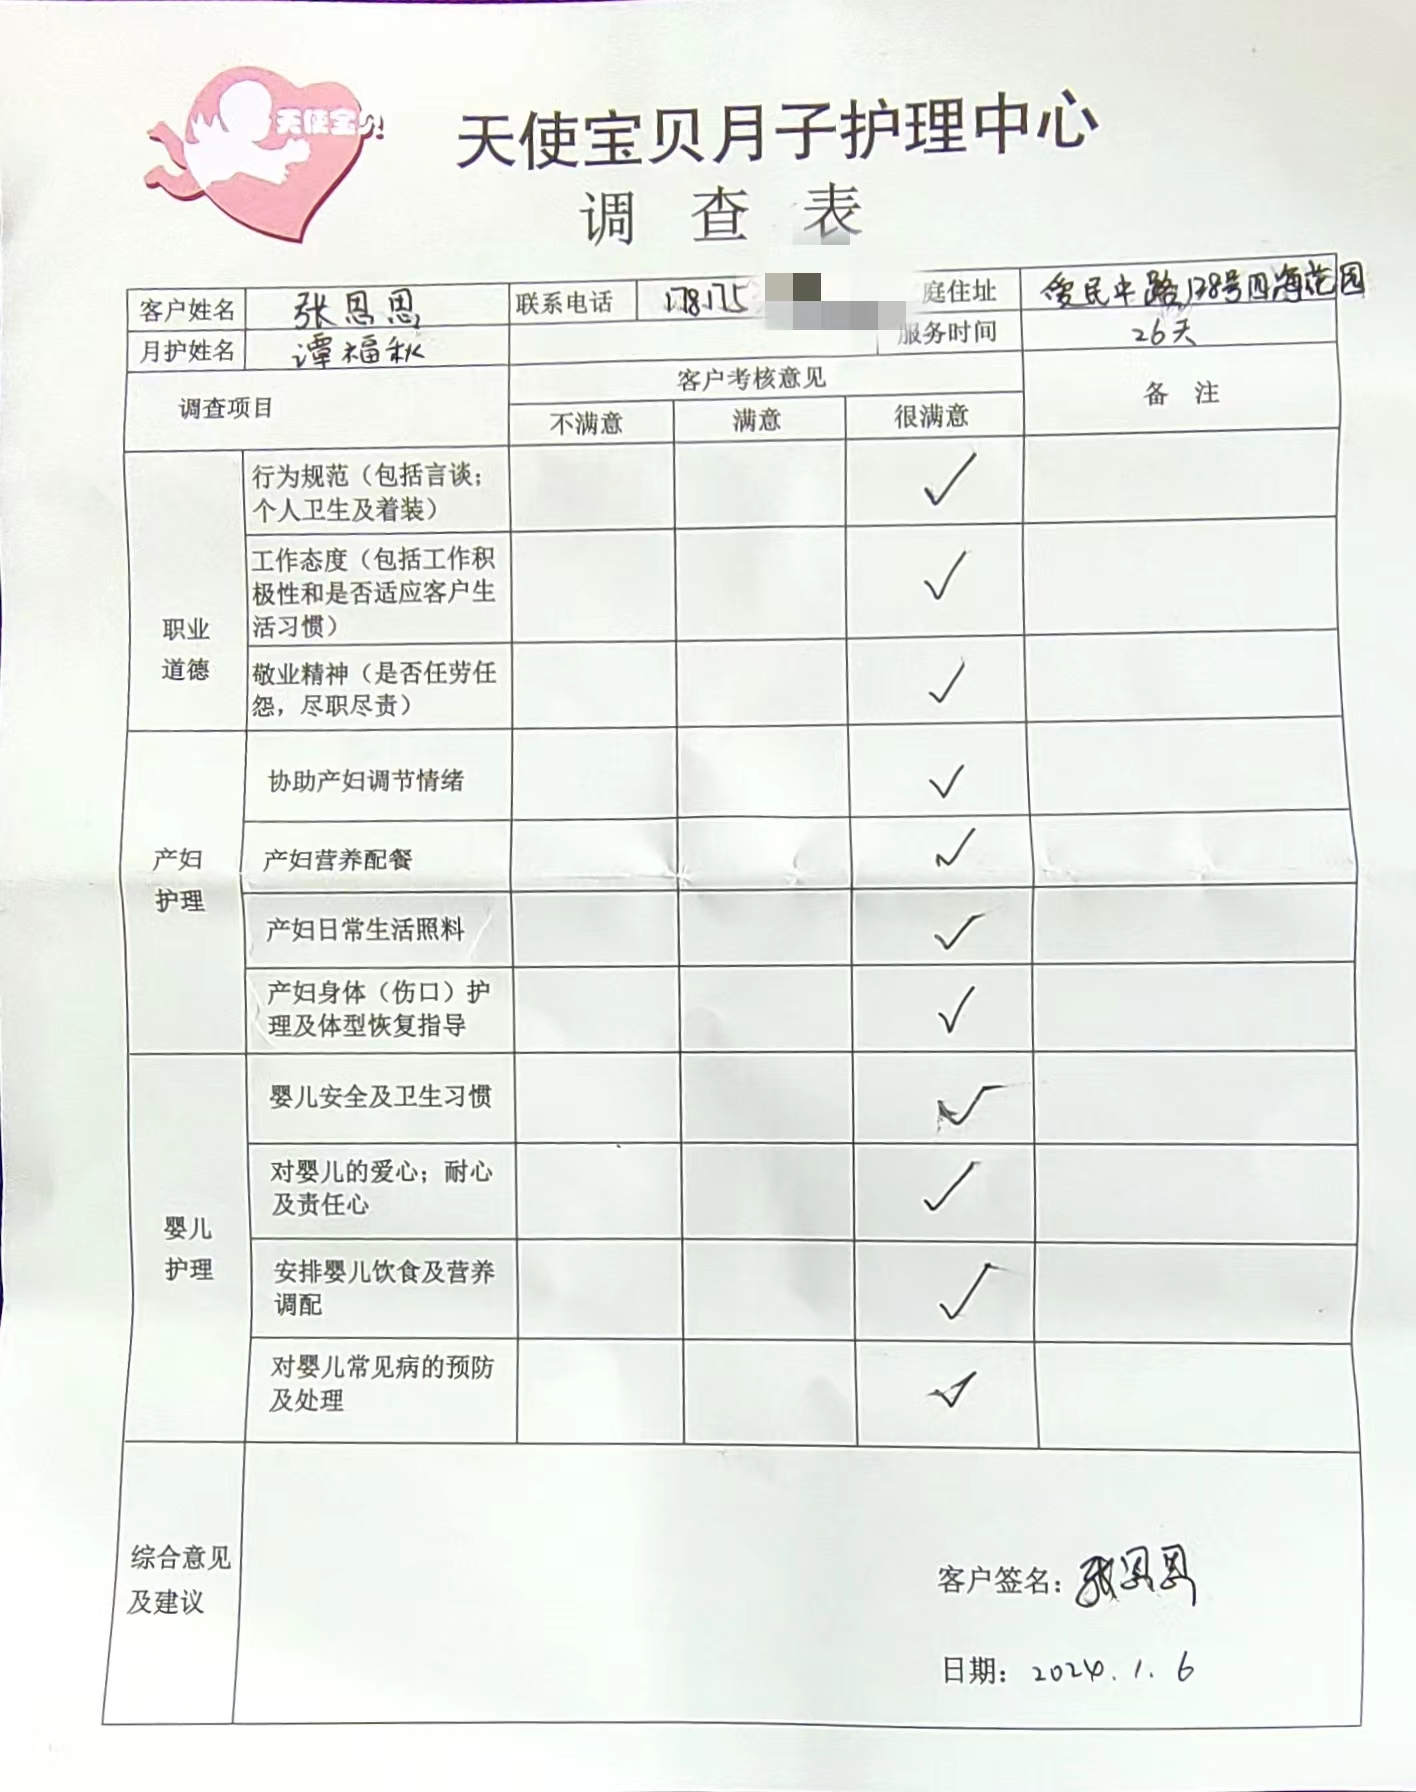 天使宝贝
天使宝贝月子护理中心
调 查 表
客户姓名 张恩恩 联系电话 178175 庭住址 爱民中路178号四海花园
月护姓名 谭福秋 服务时间 26天
调查项目 客户考核意见 备 注
不满意 满意 很满意
职业
道德
行为规范（包括言谈；
个人卫生及着装） ✓
工作态度（包括工作积
极性和是否适应客户生
活习惯） ✓
敬业精神（是否任劳任
怨，尽职尽责） ✓
产妇
护理
协助产妇调节情绪 ✓
产妇营养配餐 ✓
产妇日常生活照料 ✓
产妇身体（伤口）护
理及体型恢复指导 ✓
婴儿
护理
婴儿安全及卫生习惯 ✓
对婴儿的爱心；耐心
及责任心 ✓
安排婴儿饮食及营养
调配 ✓
对婴儿常见病的预防
及处理 ✓
综合意见
及建议
客户签名：张恩恩
日期：2024.1.6